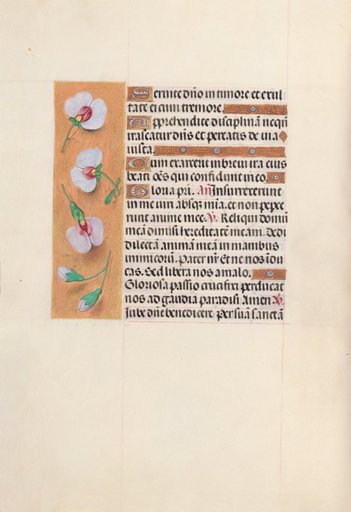 Servite dño in timore et exul
tate ei cum tremore.
Apprehendite disciplinã neqñ
irascatur dñs et pereatis de via
iusta.
Cum exarserit in brevi ira eius
beati oẽs qui confidunt in eo.
Gloria pri. Añ Insurrexerunt
in me viri absqz mĩa. et non peper
runt anime mee. V. Reliqui domũ
meã dimisi hereditatẽ meam. Dedi
dilectã animã meã in manibus
inimicorũ. Pater nr̃ Et ne nos idu
cas. Sed libera nos a malo.
Gloriosa passio crucifixi perducat
nos ad gaudia paradisi Amen V.
Iube dñe benedicere Per suã sanctã